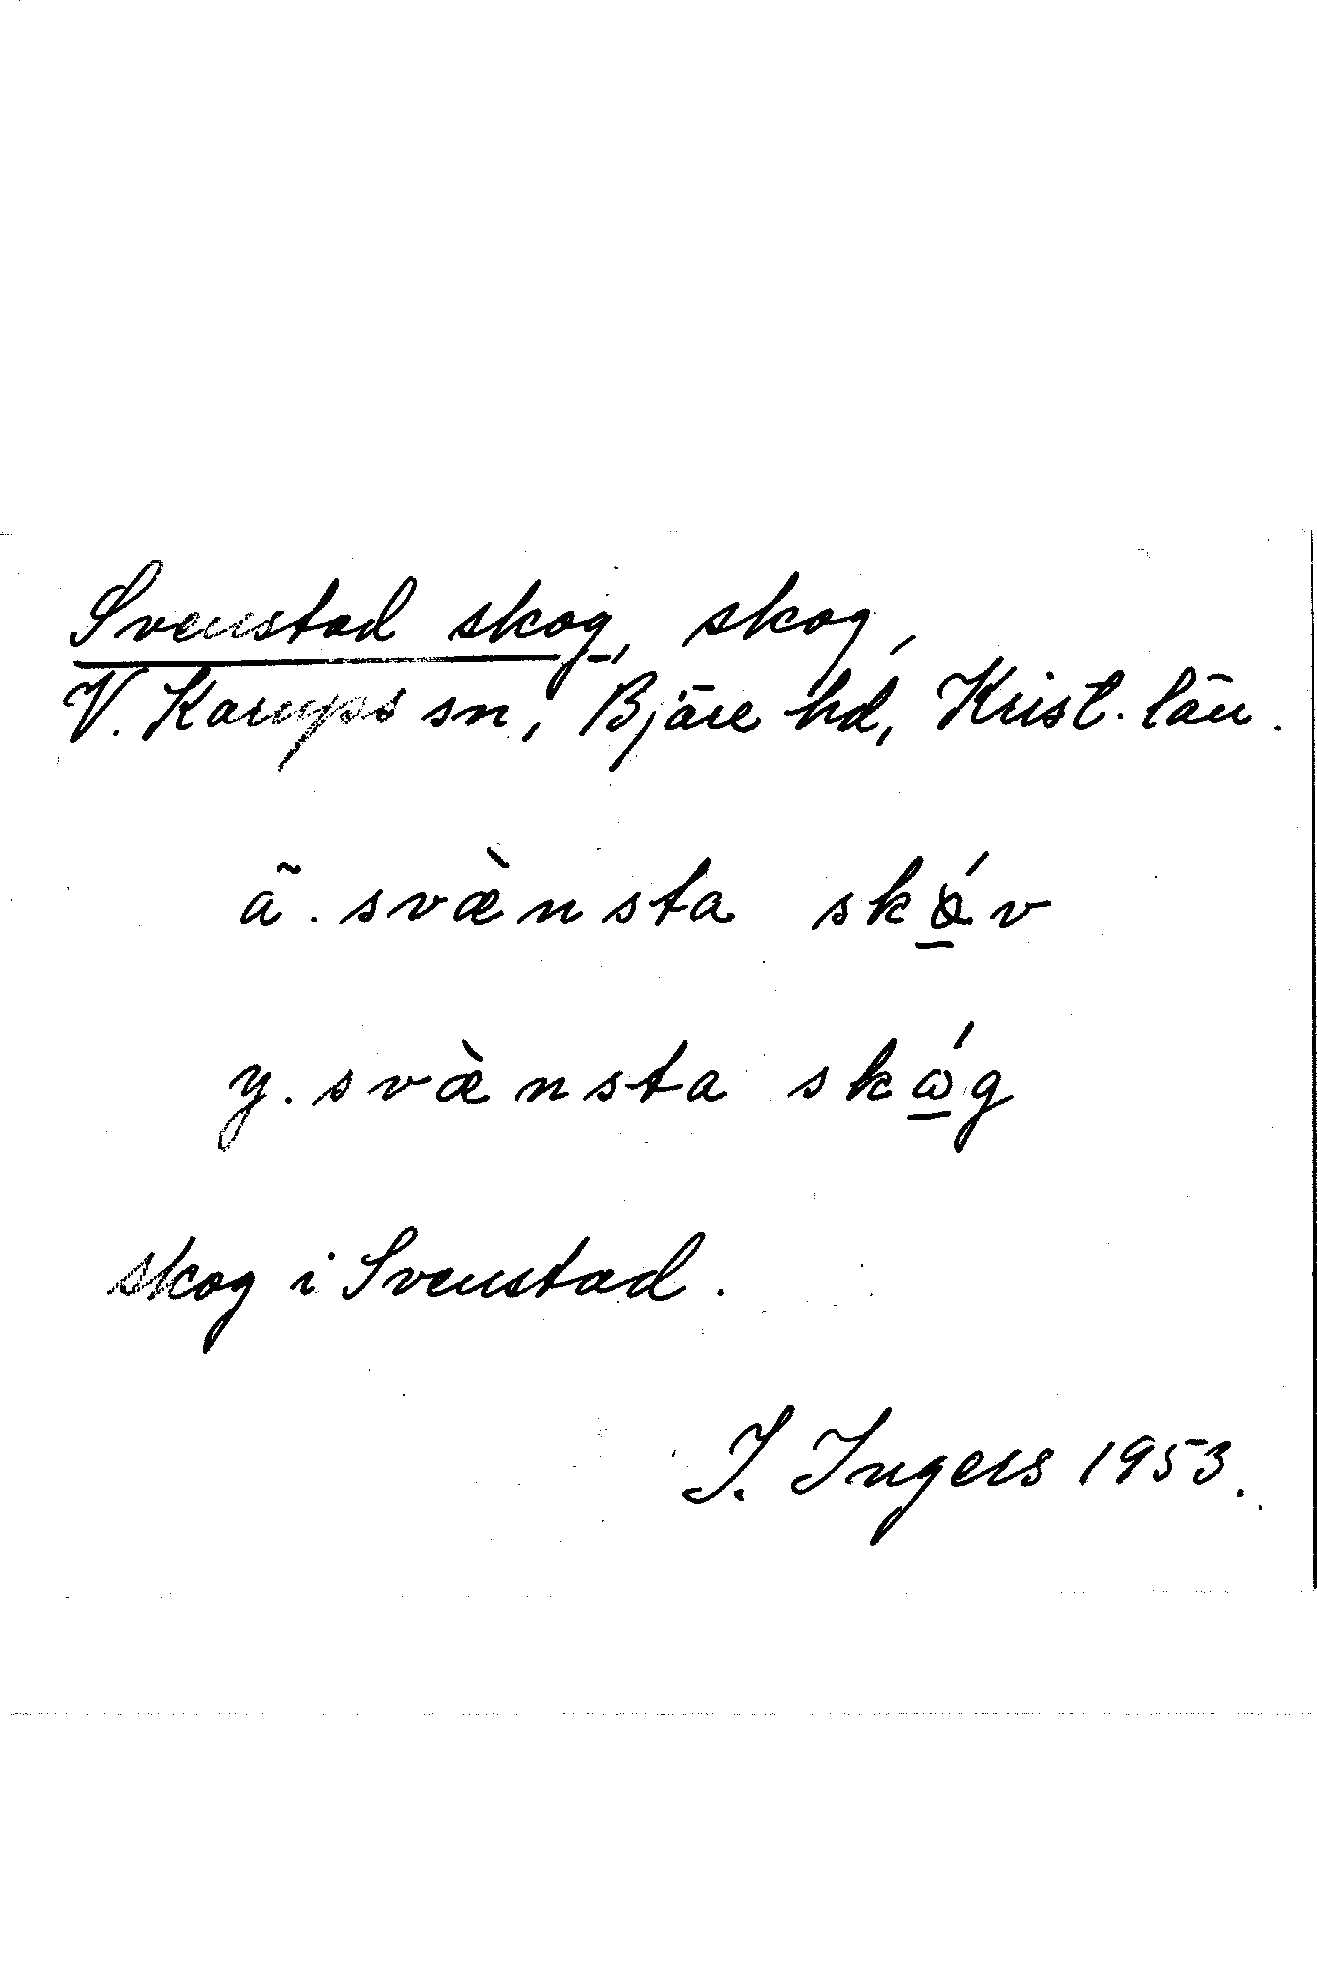 Svenstad skog, skog,
V. Karups sn, Bjäre hd, Krist. län.
ä. svæ̀nsta skǫ́v
y. svæ̀nsta skώ̱g
skog i Svenstad.
I. Ingers 1953.